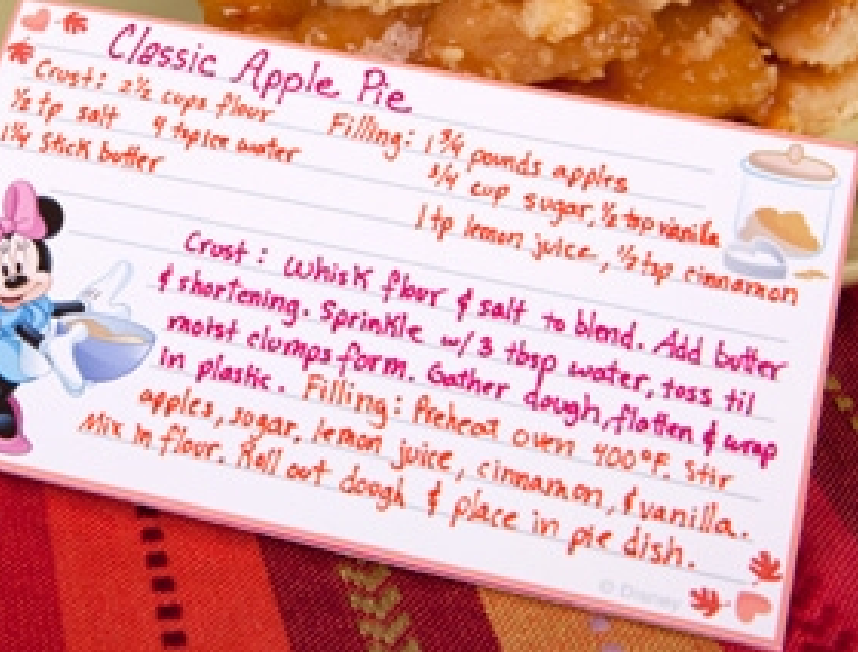 Classic Apple Pie
Crust: 2½ cups flour
½ tp salt 4 tbp ice water
1¼ stick butter
Filling: 1 ¾ pounds apples
¾ cup sugar, ½ tsp vanilla
1 tp lemon juice, ½ tsp cinnamon
Crust: Whisk flour & salt to blend. Add butter
& shortening. Sprinkle w/ 3 tbsp water, toss til
moist clumps form. Gather dough, flatten & wrap
in plastic. Filling: Preheat oven 400°F. Stir
apples, sugar, lemon juice, cinnamon, & vanilla.
Mix in flour. Roll out dough & place in pie dish.
© Disney